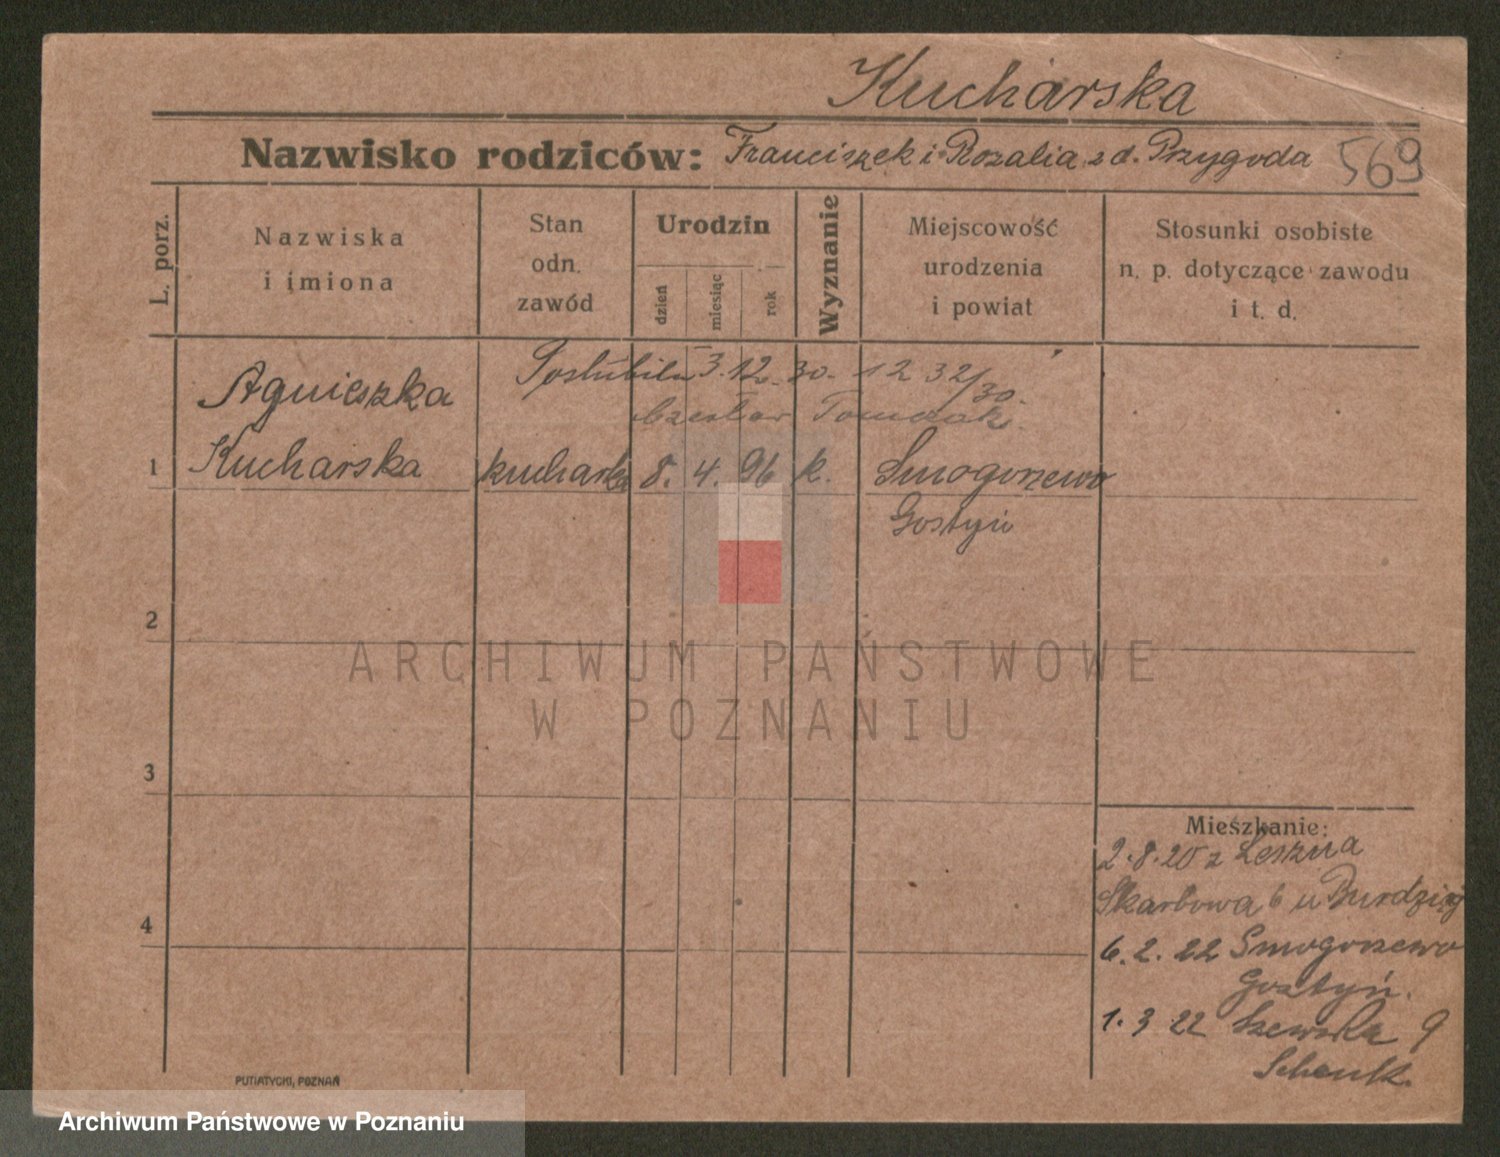 Kucharska
Nazwisko rodziców: Franciszek i Rozalia z d. Przygoda 569
L. porz.
Nazwiska
i imiona
Stan
odn.
zawód
Urodzin
dzień
miesiąc
rok
Wyznanie
Miejscowość
urodzenia
i powiat
Stosunki osobiste
n. p. dotyczące zawodu
i t. d.
Poślubiła 3.12.30. 12 32/30.
Agnieszka
Czesław
1 Kucharska kucharka 8. 4. 96 k. Smogorzewo
Gostyń
2
ARCHIWUM PAŃSTWOWE
W POZNANIU
3
Mieszkanie:
2.8.20 z Leszna
Skarbowa 6 u
4
6.2.22 Smogorzewo
Gostyń.
1.3 22 Szewska 9
Schenk.
PUTIATYCKI, POZNAŃ
Archiwum Państwowe w Poznaniu